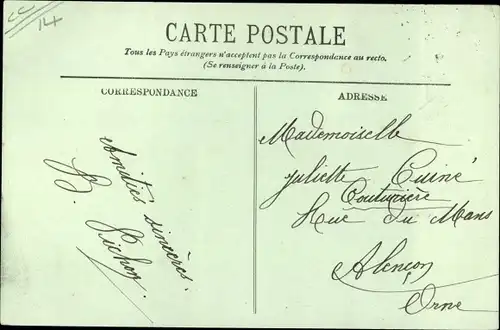 14
CARTE POSTALE
Tous les Pays étrangers n'acceptent pas la Correspondance au recto.
(Se renseigner à la Poste).
CORRESPONDANCE
ADRESSE
Amitiés sincères.
B. Pichon.
Mademoiselle
Juliette Cuiné
Couturière
Rue du Mans
Alençon
Orne